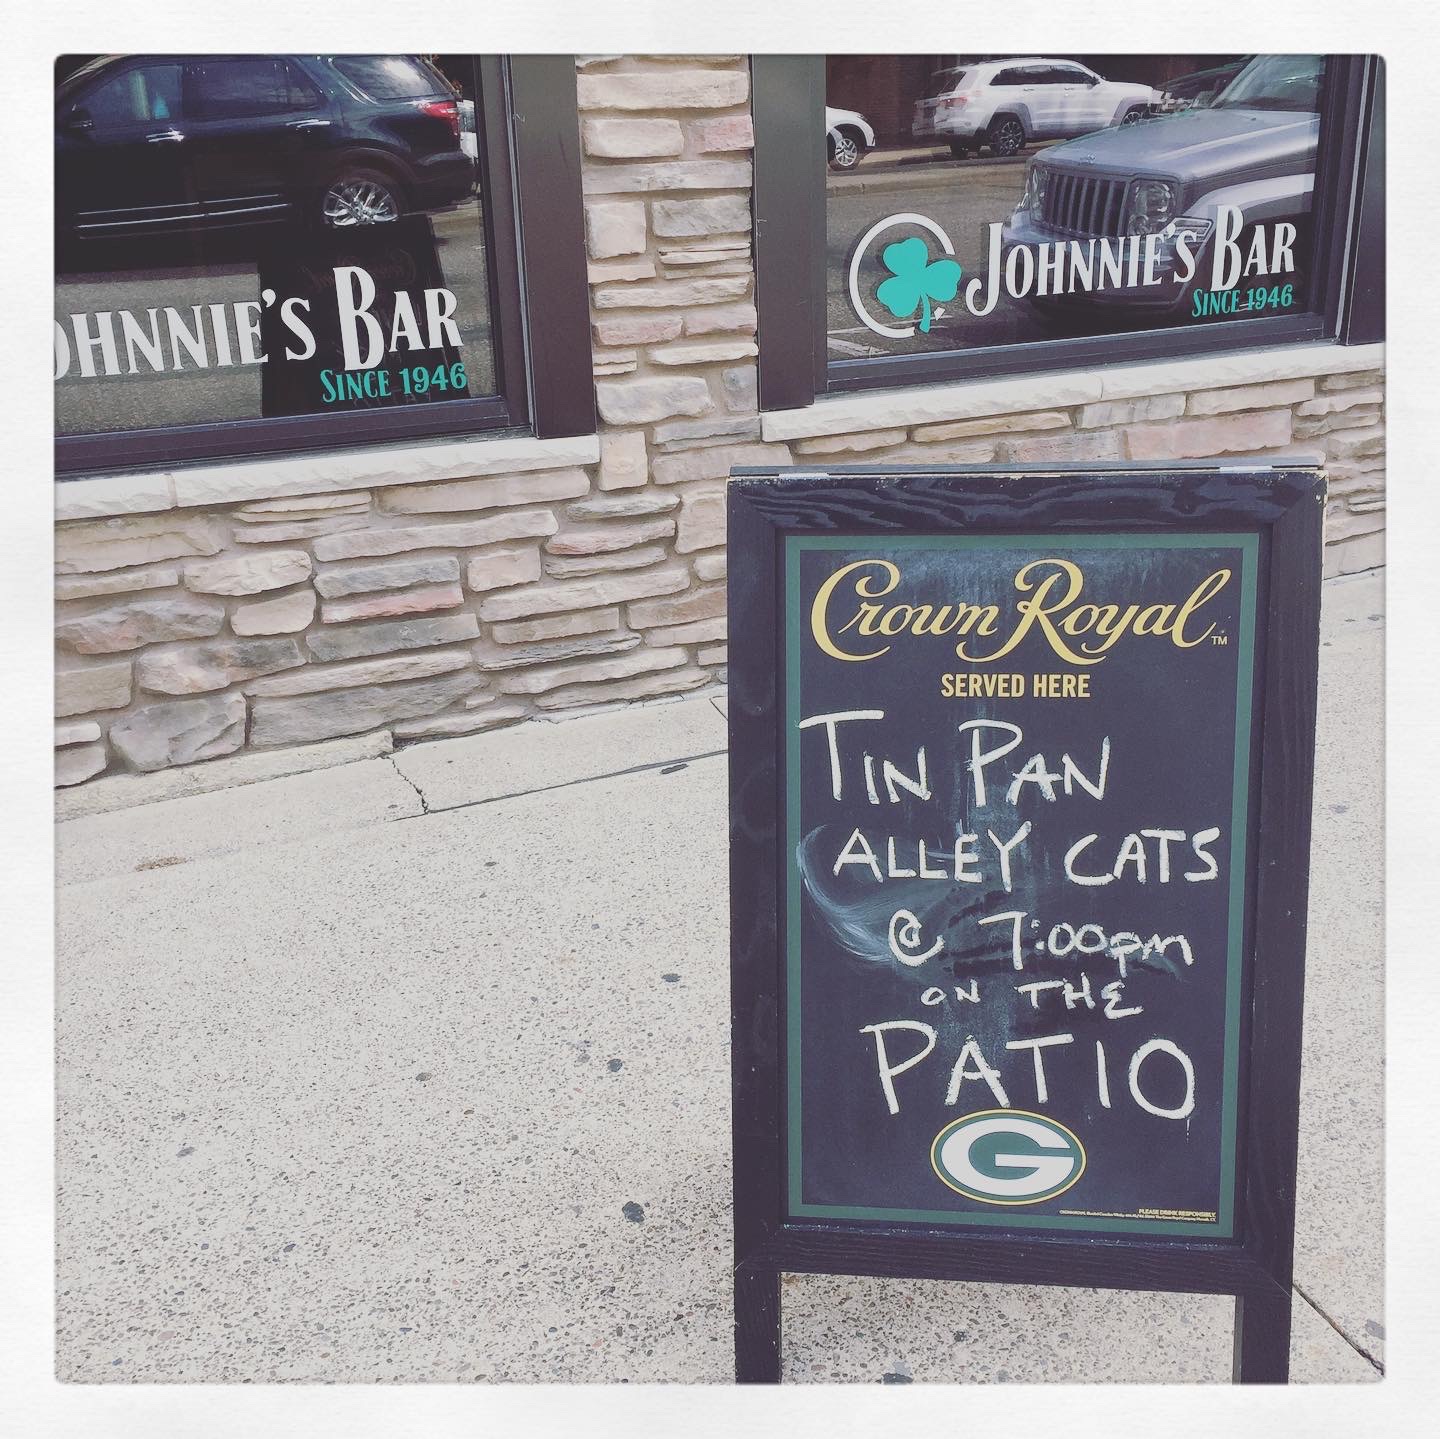 JOHNNIE'S BAR
SINCE 1946
JOHNNIE'S BAR
SINCE 1946
Crown Royal™
SERVED HERE
TIN PAN
ALLEY CATS
@ 7:00pm
ON THE
PATIO
G
PLEASE DRINK RESPONSIBLY.